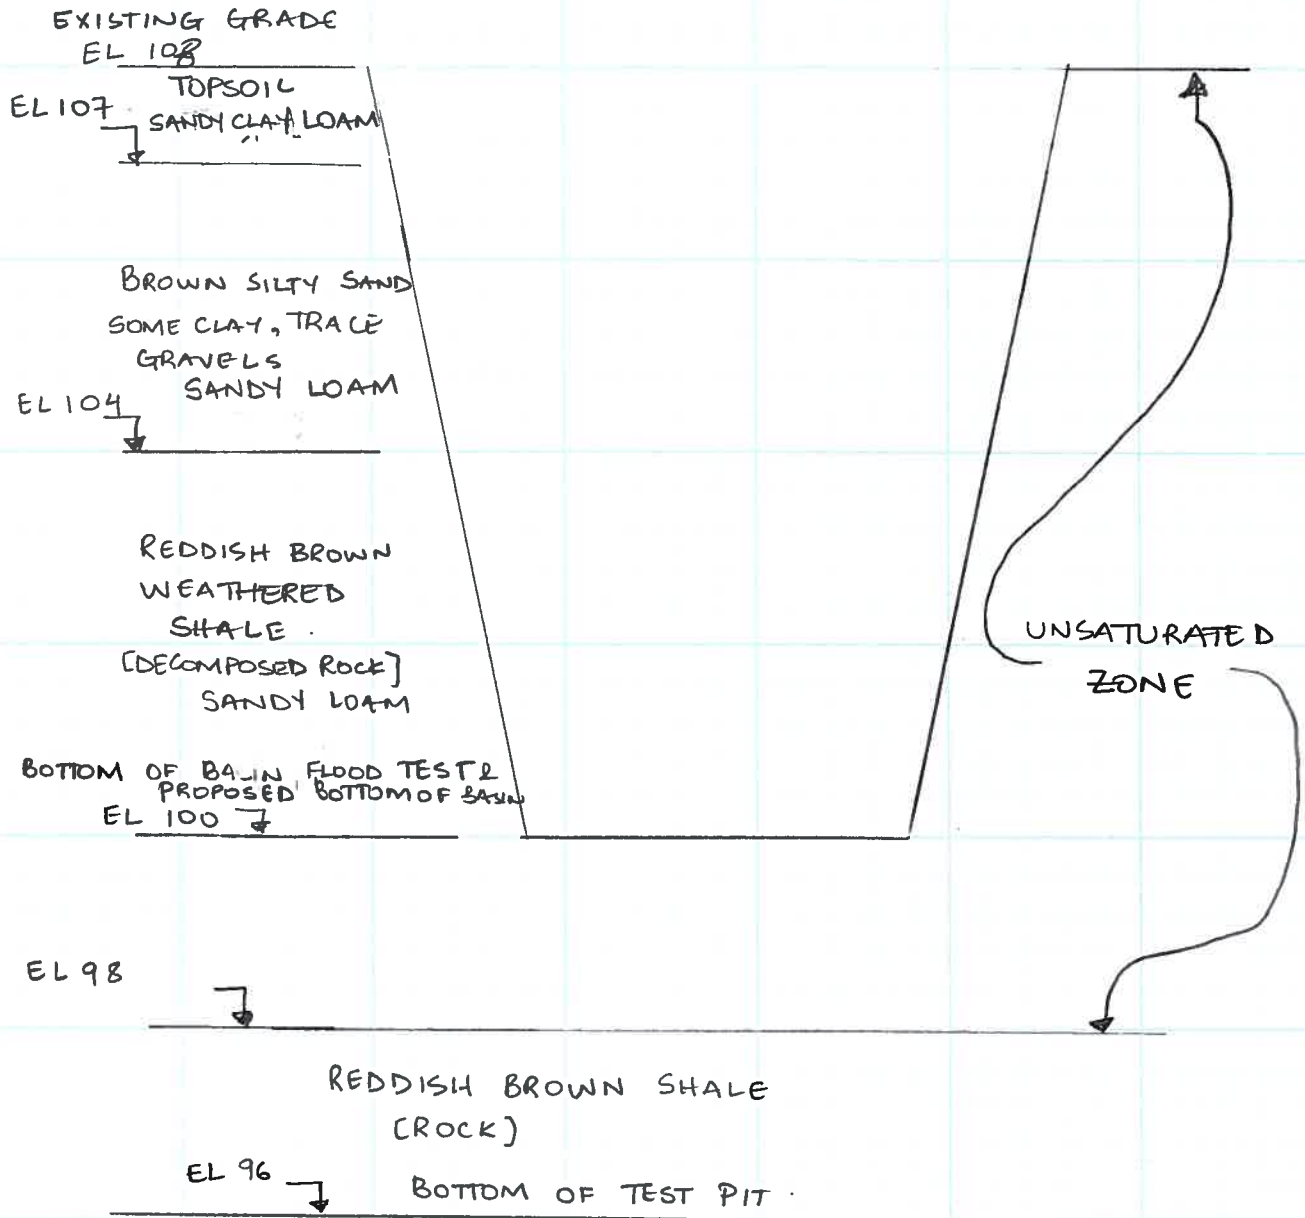 EXISTING GRADE
EL 108
TOPSOIL
EL 107
SANDY CLAY LOAM
BROWN SILTY SAND
SOME CLAY, TRACE
GRAVELS
SANDY LOAM
EL 104
REDDISH BROWN
WEATHERED
SHALE.
[DECOMPOSED ROCK]
SANDY LOAM
UNSATURATED
ZONE
BOTTOM OF BASIN FLOOD TEST &
PROPOSED BOTTOM OF BASIN
EL 100
EL 98
REDDISH BROWN SHALE
[ROCK]
EL 96
BOTTOM OF TEST PIT.